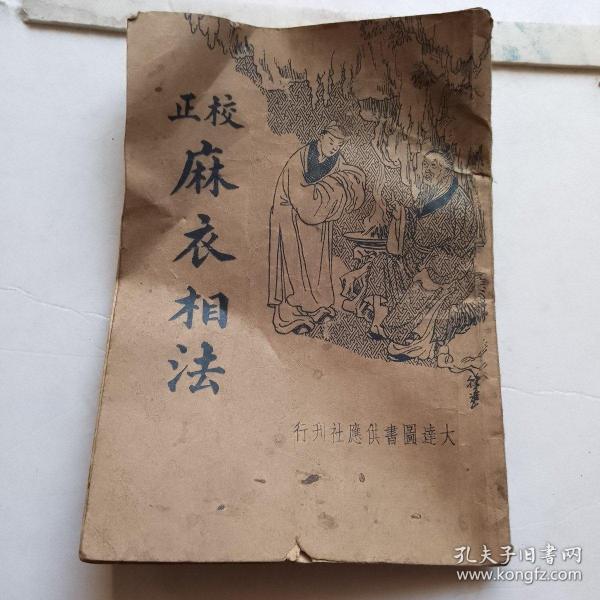 校正
麻衣相法
大達圖書供應社刋行
孔夫子旧书网
www.kongfz.com